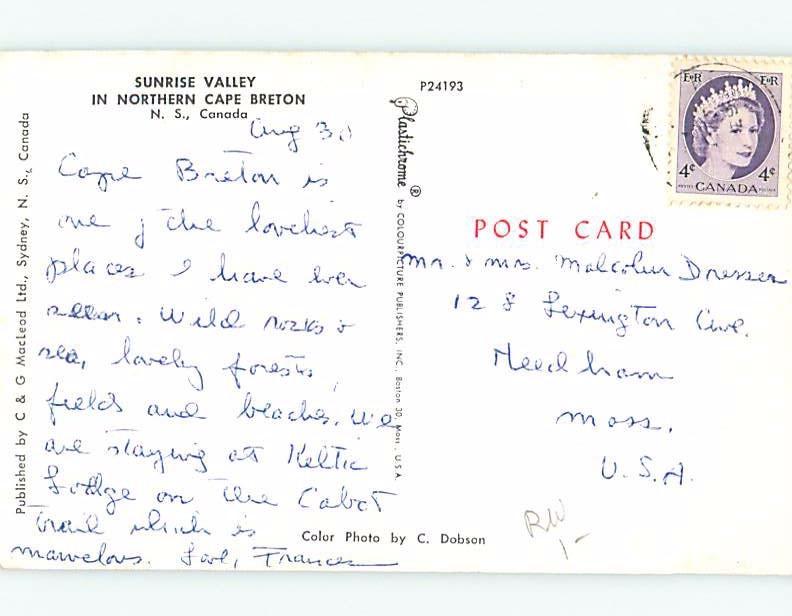 SUNRISE VALLEY
IN NORTHERN CAPE BRETON
N. S., Canada
Aug 30
Cape Breton is
one of the loveliest
places I have ever
seen. Wild rocks &
sea, lovely forests,
fields and beaches. We
are staying at Keltic
Lodge on the Cabot
Trail which is
marvelous. Love, Frances
Published by C & G MacLeod Ltd., Sydney, N. S., Canada
P24193
Plastichrome ®
by COLOURPICTURE PUBLISHERS, INC., Boston 30, Mass., U.S.A
Color Photo by C. Dobson
E II R E II R
4¢ 4¢
POSTES CANADA POSTAGE
POST CARD
Mr. & Mrs. Malcolm Dresser
128 Lexington Ave.
Needham
Mass.
U.S.A.
RW
1-